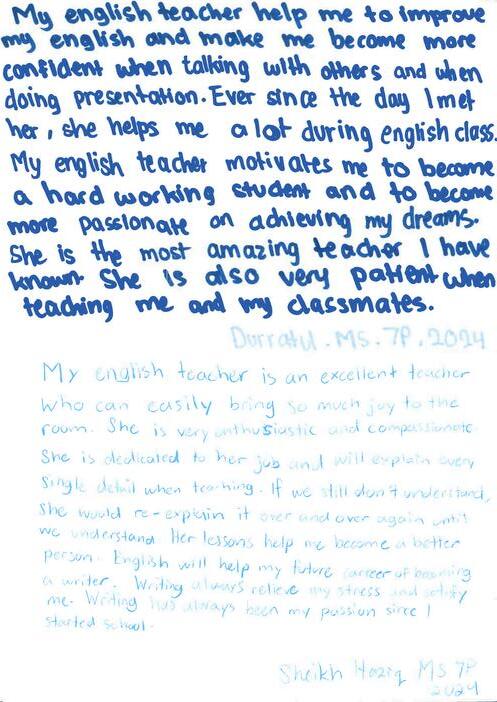 My english teacher help me to improve
my english and make me become more
confident when talking with others and when
doing presentation. Ever since the day I met
her, she helps me a lot during english class.
My english teacher motivates me to become
a hard working student and to become
more passionate on achieving my dreams.
She is the most amazing teacher I have
known. She is also very patient when
teaching me and my classmates.
Durratul . MS . 7P . 2024
My english teacher is an excellent teacher
who can easily bring so much joy to the
room. She is very enthusiastic and compassionate.
She is dedicated to her job and will explain every
single detail when teaching. If we still don't understand,
she would re-explain it over and over again until
we understand. Her lessons help me become a better
person. English will help my future carreer of becoming
a writer. Writing always relieve my stress and satisfy
me. Writing has always been my passion since I
started school.
Sheikh Haziq MS 7P
2024